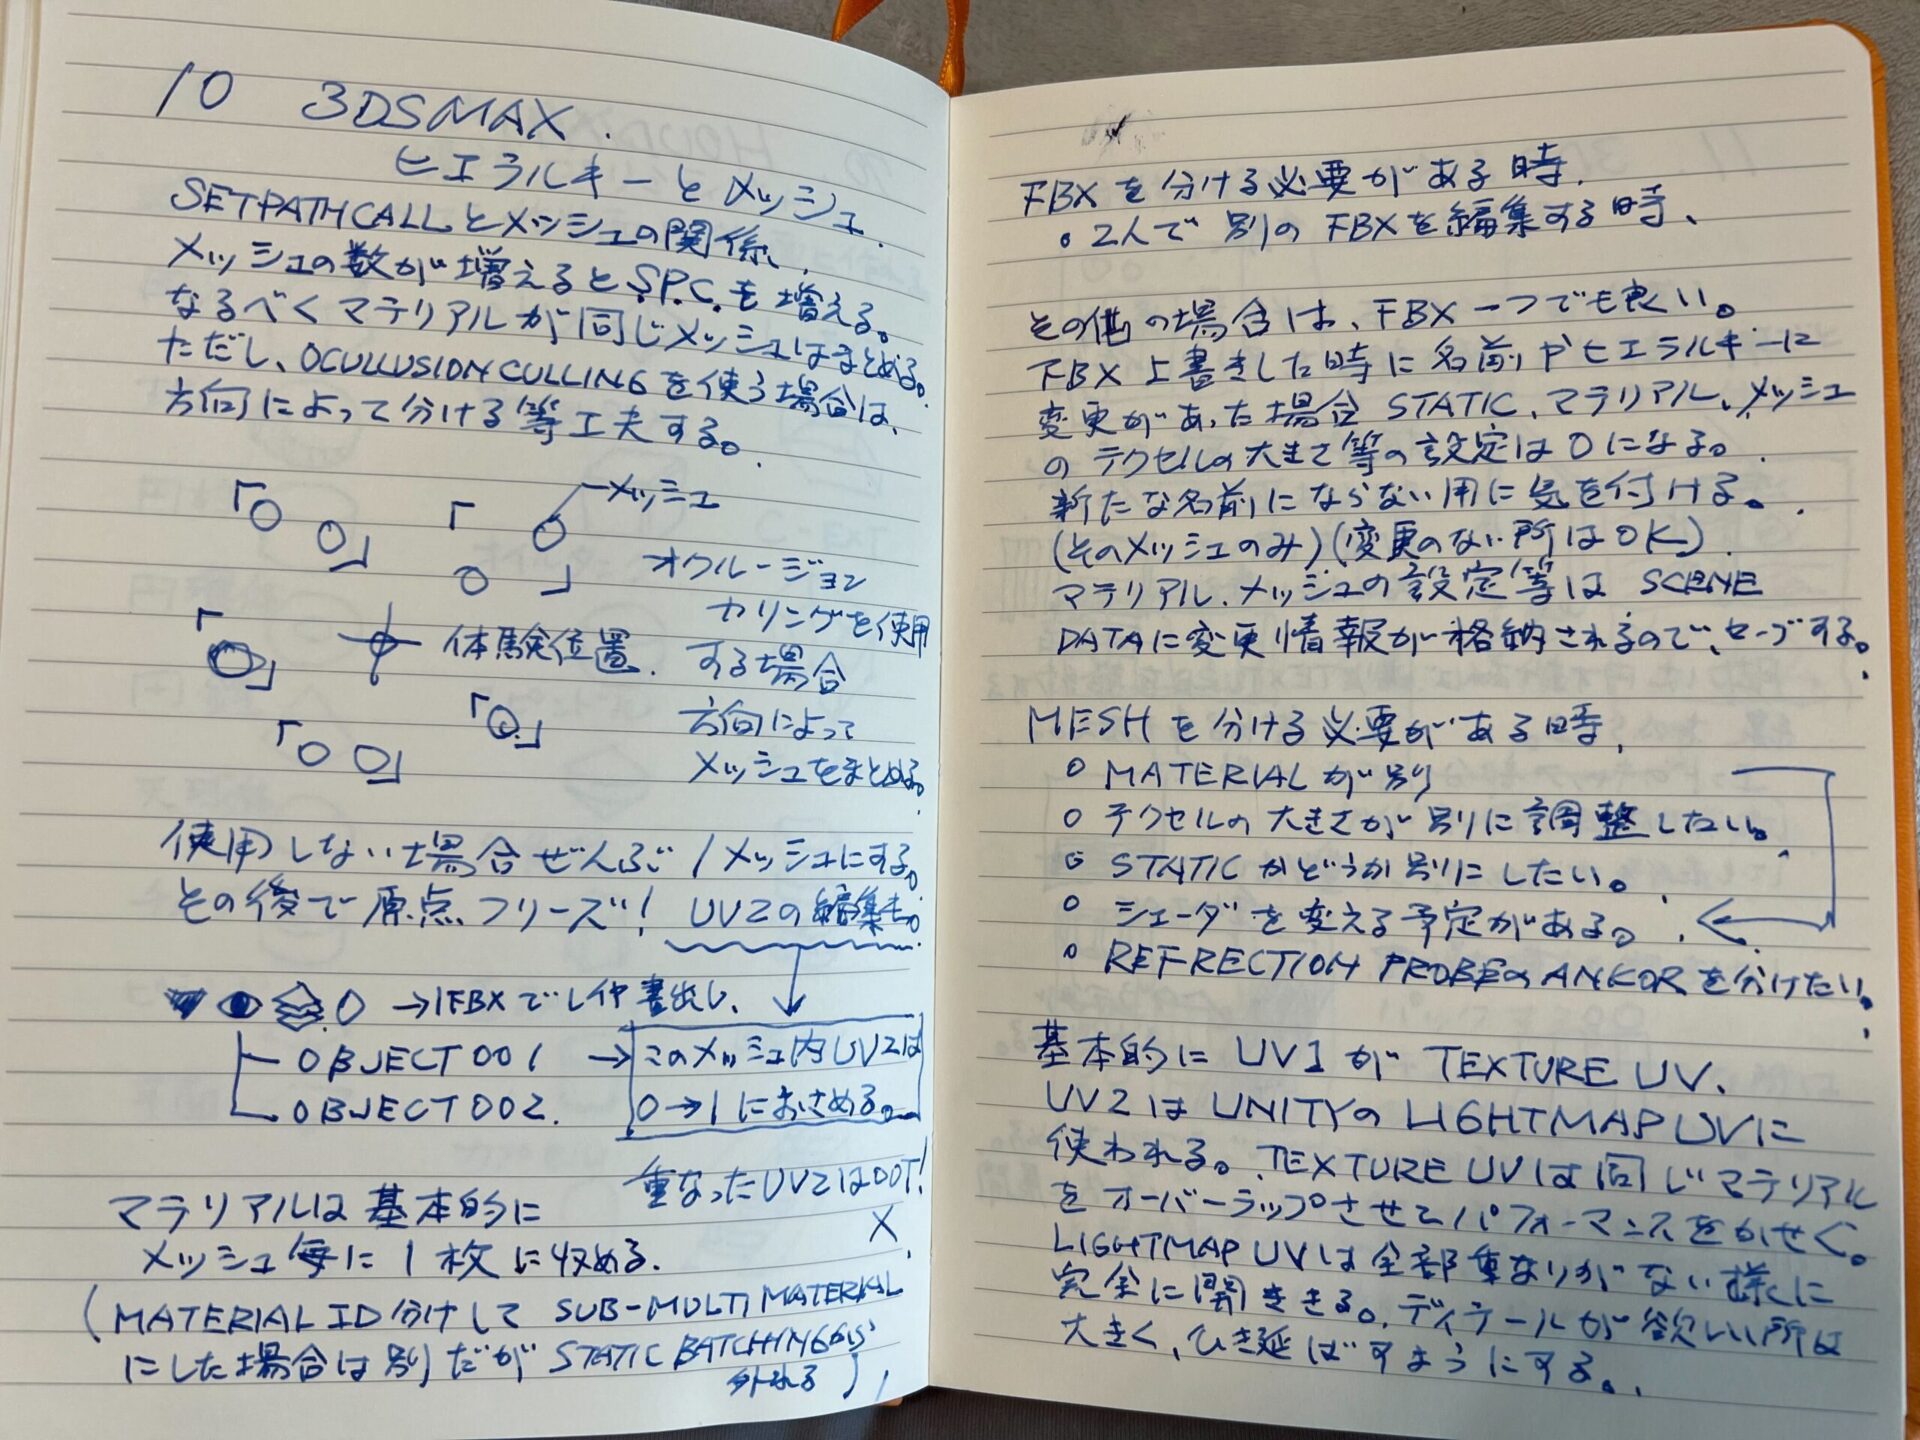 10 3DSMAX.
ヒエラルキーとメッシュ.
SETPATHCALLとメッシュの関係、
メッシュの数が増えるとS.P.C.も増える。
なるべくマテリアルが同じメッシュはまとめる。
ただし、OCULLUSION CULLINGを使う場合は、
方向によって分ける等工夫する。
メッシュ
オクルージョン
カリングを使用
する場合
方向によって
メッシュをまとめる。
体験位置.
使用しない場合ぜんぶ1メッシュにする。
その後で原点フリーズ! UV2の編集も。
→1FBXで 書出し、
OBJECT001 → このメッシュ内UV2は
OBJECT002. 0→1におさめる。
重なったUV2はOUT!
X
マテリアルは基本的に
メッシュ毎に1枚に収める.
(MATERIAL ID分けして SUB-MULTI MATERIAL
にした場合は別だが STATIC BATCHINGから
外れる)
FBXを分ける必要がある時.
・2人で別のFBXを編集する時、
その他の場合は、FBX一つでも良い。
FBX上書きした時に名前やヒエラルキーに
変更があった場合 STATIC、マテリアル、メッシュ
のテクセルの大きさ等の設定は0になる。
新たな名前にならない用に気を付ける。
(そのメッシュのみ)(変更のない所はOK)
マテリアル、メッシュの設定等は SCENE
DATAに変更情報が格納されるので、セーブする。
MESHを分ける必要がある時、
○ MATERIALが別
○ テクセルの大きさが別に調整したい。
○ STATICかどうか別にしたい。
○ シェーダを変える予定がある。
○ REFRECTION PROBEのANKORを分けたい。
基本的に UV1が TEXTURE UV、
UV2はUNITYのLIGHTMAP UVに
使われる。TEXTURE UVは同じマテリアル
をオーバーラップさせてパフォーマンスをかせぐ。
LIGHTMAP UVは全部重なりがない様に
完全に開ききる。ディテールが欲しい所は
大きく、ひき延ばすようにする。